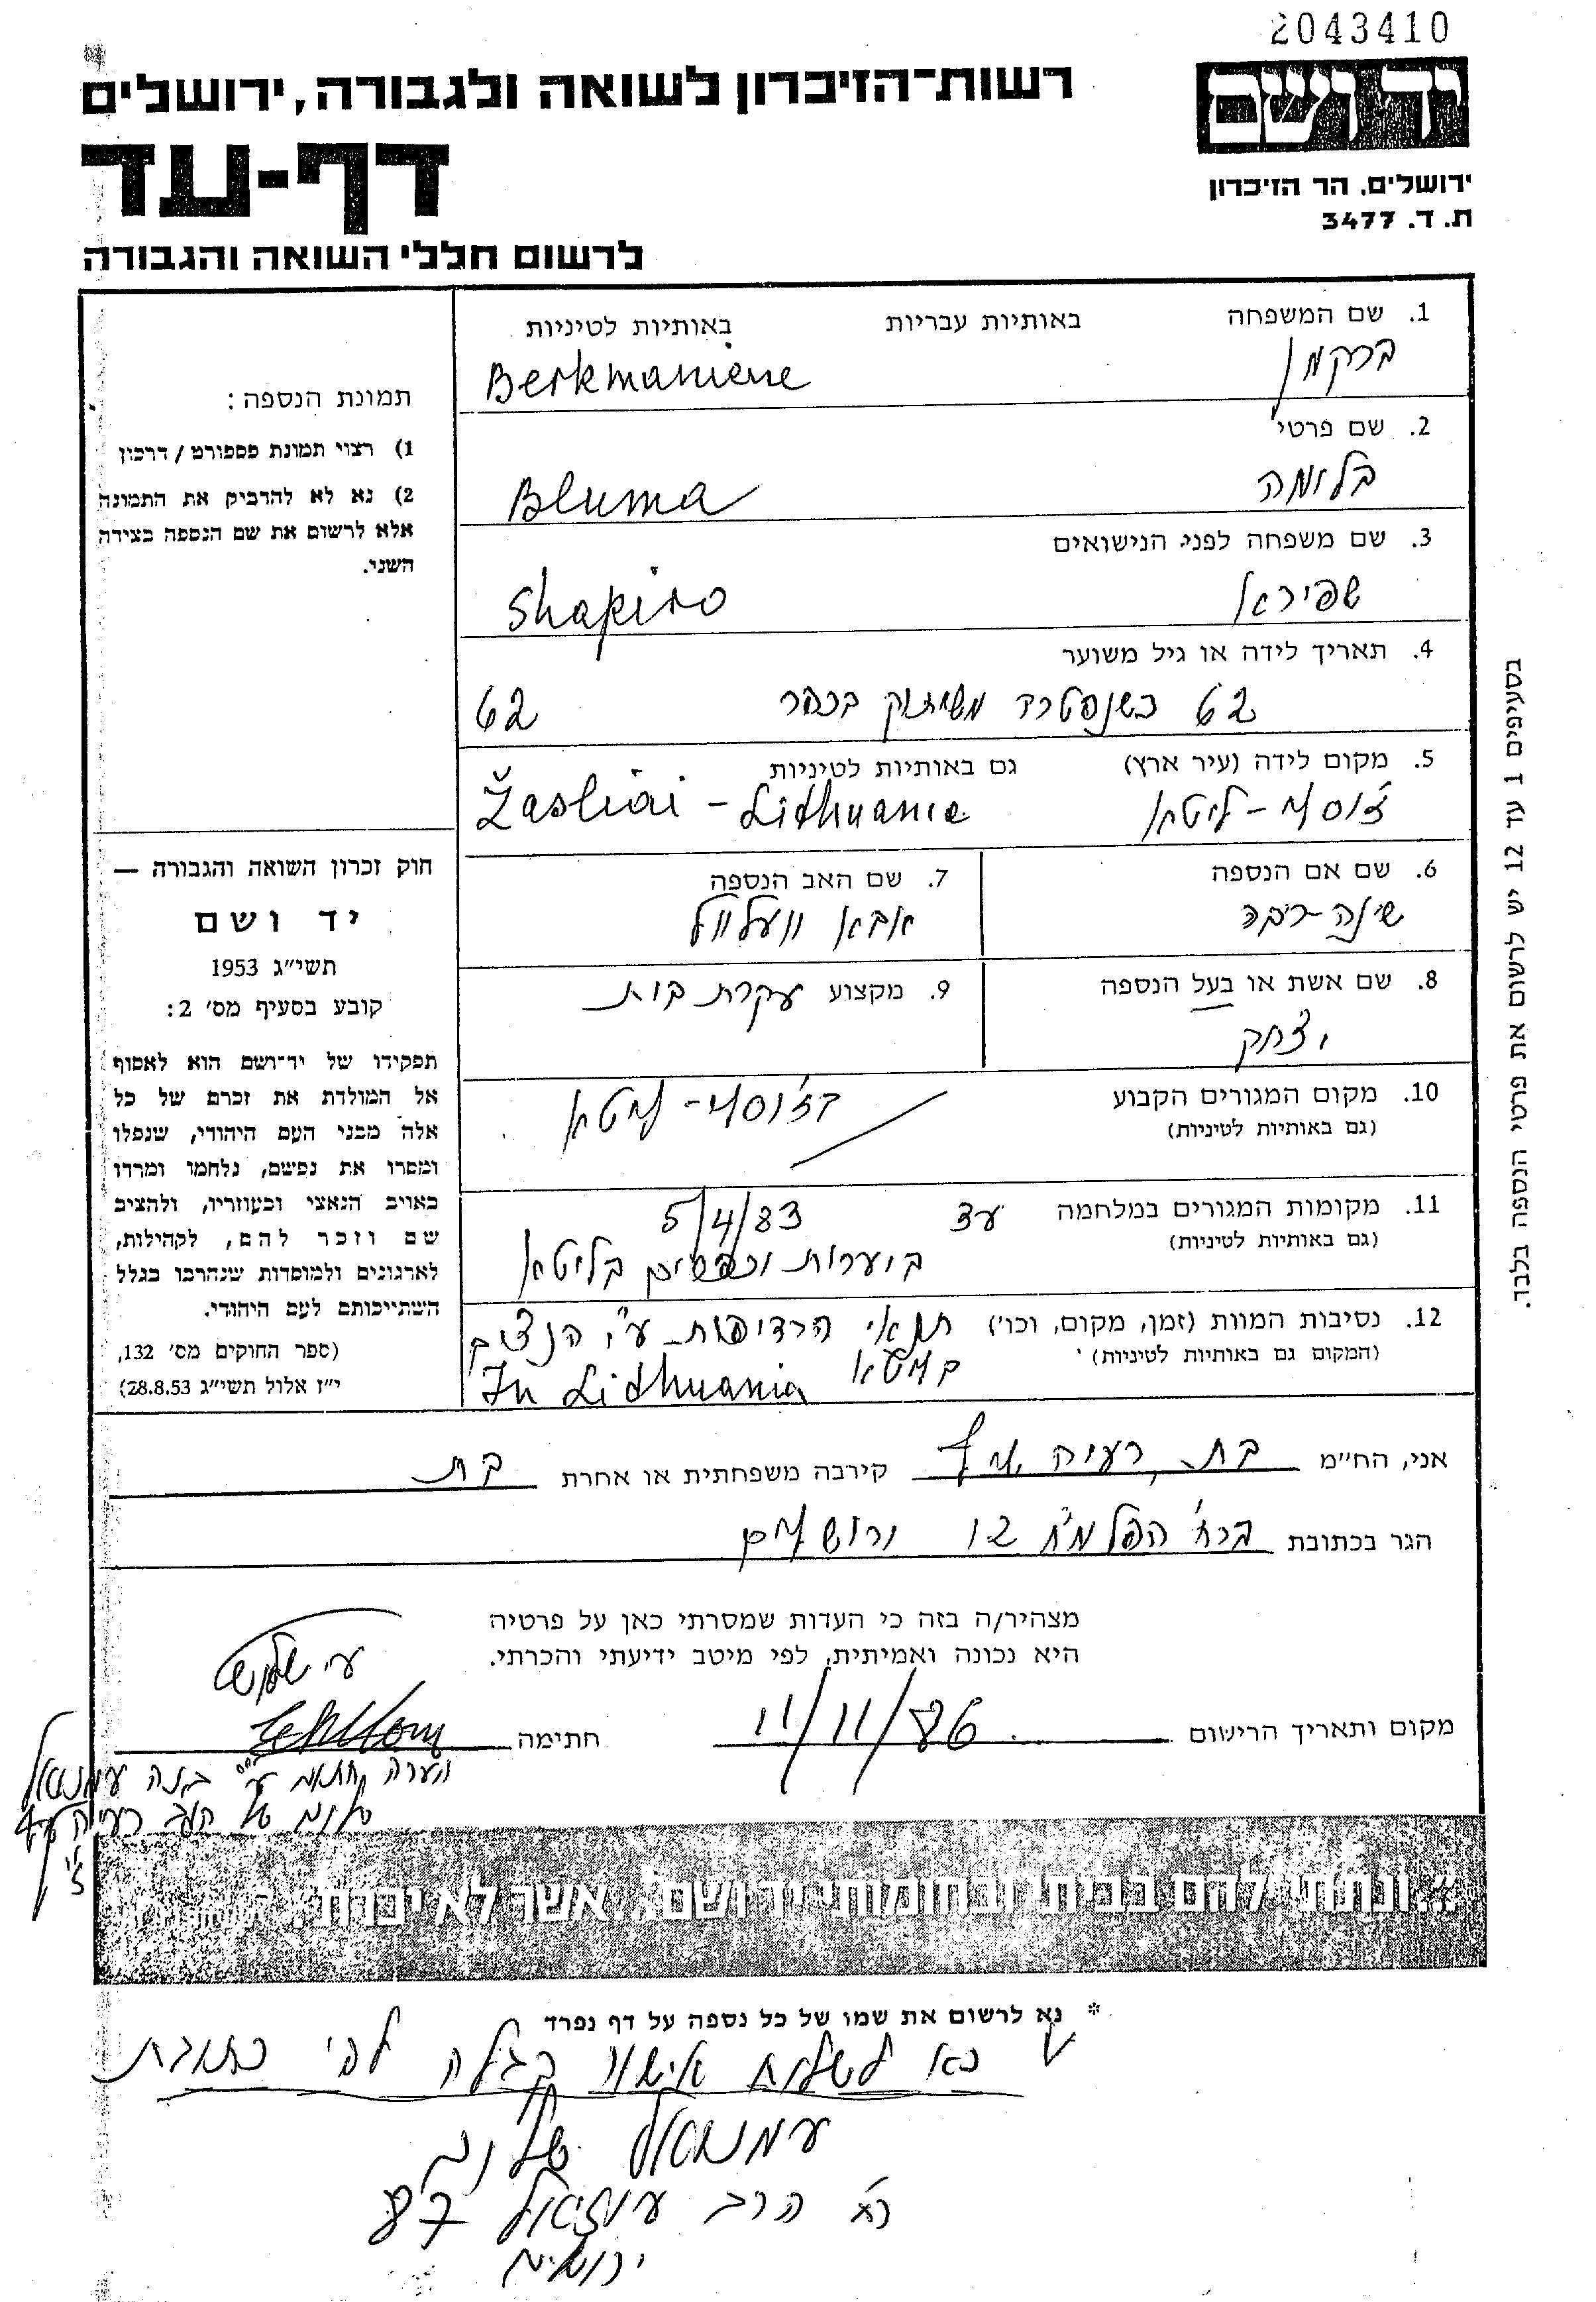 2043410
יד ושם
רשות-הזיכרון לשואה ולגבורה, ירושלים
דף-עד
לרשום חללי השואה והגבורה
ירושלים, הר הזיכרון
ת. ד. 3477
1. שם המשפחה באותיות עבריות באותיות לטיניות
ברקמן Berkmaniene
2. שם פרטי
בלומה Bluma
3. שם משפחה לפני הנישואים
שפירא Shapiro
4. תאריך לידה או גיל משוער
62 כשנפטרה 62
5. מקום לידה (עיר ארץ) גם באותיות לטיניות
ז'וסלי - ליטא Žasliai - Lithuania
6. שם אם הנספה 7. שם האב הנספה
שינה-ריבה אבא וועלוול
8. שם אשת או בעל הנספה 9. מקצוע עקרת בית
יצחק
10. מקום המגורים הקבוע
(גם באותיות לטיניות)
בז'וסלי - ליטא
11. מקומות המגורים במלחמה עד 5/4/83
(גם באותיות לטיניות)
ביערות בליטא
12. נסיבות המוות (זמן, מקום, וכו') תנאי הרדיפות ע"י הנאצים
(המקום גם באותיות לטיניות) בליטא In Lithuania
תמונת הנספה:
1) רצוי תמונת פספורט / דרכון
2) נא לא להדביק את התמונה
אלא לרשום את שם הנספה בצידה
השני.
חוק זכרון השואה והגבורה —
יד ושם
תשי"ג 1953
קובע בסעיף מס' 2:
תפקידו של יד-ושם הוא לאסוף
אל המולדת את זכרם של כל
אלה מבני העם היהודי, שנפלו
ומסרו את נפשם, נלחמו ומרדו
באויב הנאצי ובעוזריו, ולהציב
שם וזכר להם, לקהילות,
לארגונים ולמוסדות שנחרבו בגלל
השתייכותם לעם היהודי.
(ספר החוקים מס' 132,
י"ז אלול תשי"ג 28.8.53)
בסעיפים 1 עד 12 יש לרשום את פרטי הנספה בלבד.
אני, הח"מ בת קירבה משפחתית או אחרת בת
הגר בכתובת ברח' הפלמ"ח 12 ירושלים
מצהיר/ה בזה כי העדות שמסרתי כאן על פרטיה
היא נכונה ואמיתית, לפי מיטב ידיעתי והכרתי.
מקום ותאריך הרישום 11/11/86 חתימה
הערה נחתם ע"י בנה עמנואל
"...ונתתי להם בביתי ובחומותי יד ושם... אשר לא יכרת".
* נא לרשום את שמו של כל נספה על דף נפרד
נא לשלוח אישור קבלה לפי כתובת
עמנואל
רח' הרב עוזיאל
ירושלים